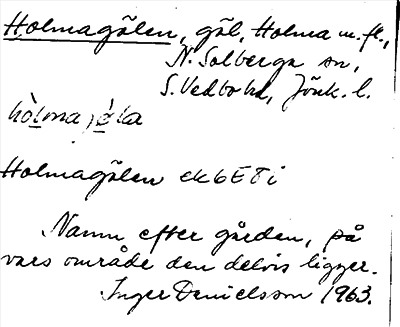 Holmagölen, göl, Holma m. fl.,
N. Solberga sn,
S. Vedbo hd, Jönk. l.
Holmagölen ek 6E8i
Namn efter gården, på
vars område den delvis ligger.
Inger Danielsson 1963.